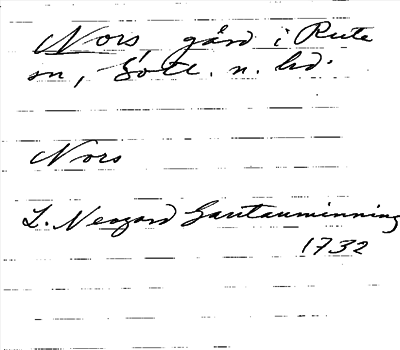 Nors, gård i Rute
sn, Gotl. n. hd.
Nors
L. Neogard Gautauminning
1732